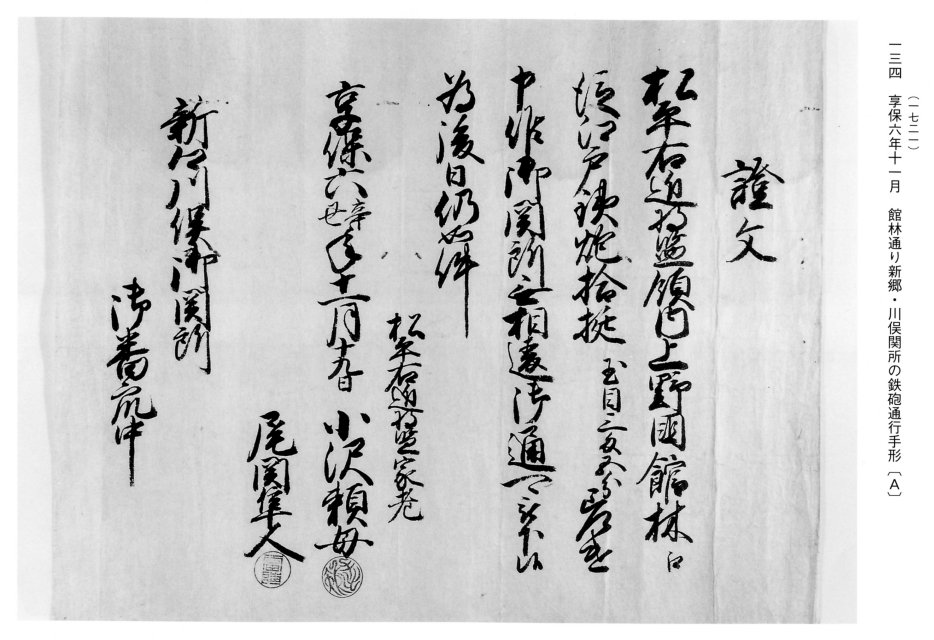 一三四　享保六年十一月　館林通り新郷・川俣関所の鉄砲通行手形〔A〕
（一七二一）
證文
松平右近将監領内上野國館林江
従江戸鉄炮拾挺 玉目三匁五分
申候御関所無相違御通可被下候
為後日仍如件
松平右近将監家老
享保六辛丑年十一月十九日　小沢頼母
尾関隼人
新郷川俣御関所
御番衆中